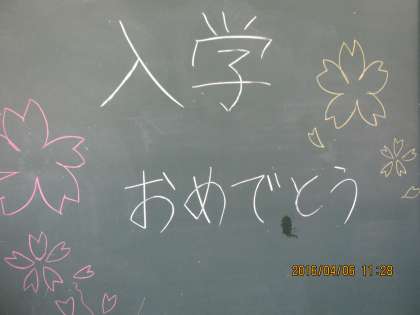 入学
おめでとう
2016/04/06 11:28